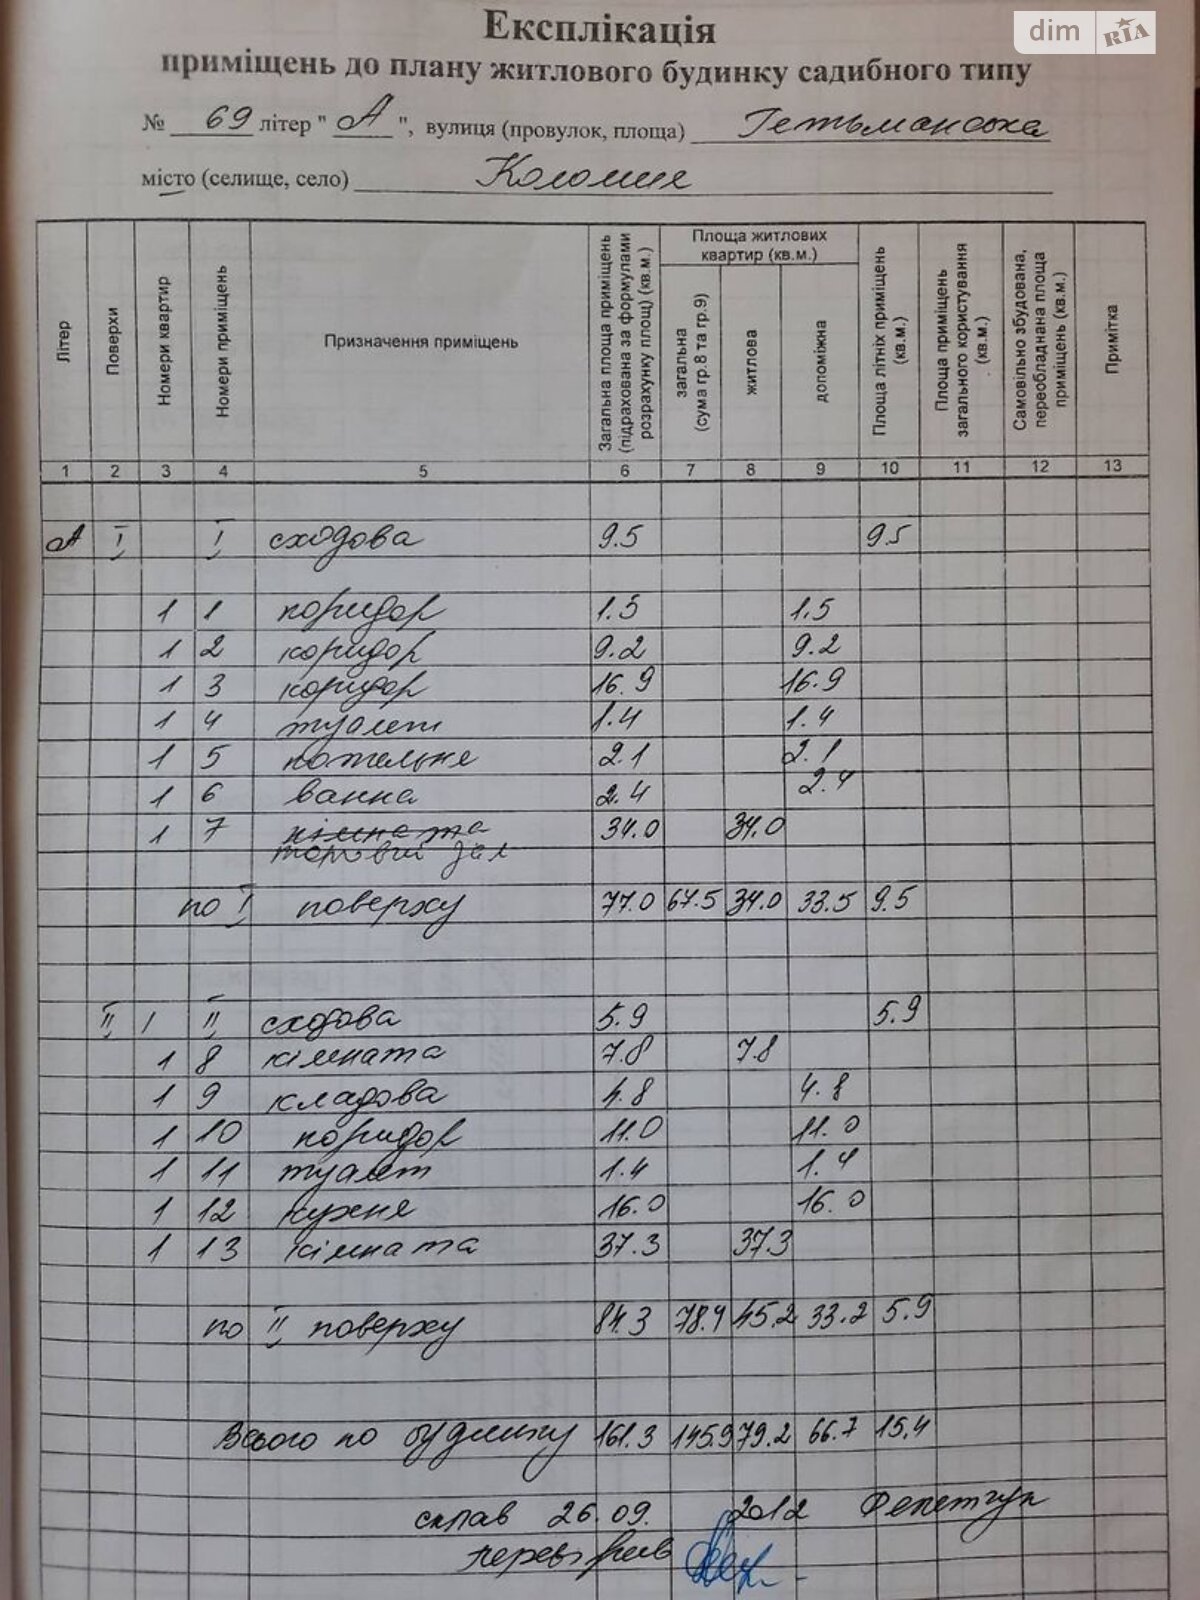 Експлікація
dim RIA
приміщень до плану житлового будинку садибного типу
№ 69 літер " А ", вулиця (провулок, площа) Гетьманська
місто (селище, село) Коломия
Літер
Поверхи
Номери квартир
Номери приміщень
Призначення приміщень
Загальна площа приміщень (підрахована за формулами розрахунку площ) (кв.м.)
Площа житлових квартир (кв.м.)
загальна (сума гр.8 та гр.9)
житлова
допоміжна
Площа літніх приміщень (кв.м.)
Площа приміщень загального користування (кв.м.)
Самовільно збудована, переобладнана площа приміщень (кв.м.)
Примітка
1 2 3 4 5 6 7 8 9 10 11 12 13
А І І сходова 9.5 9.5
1 1 коридор 1.5 1.5
1 2 коридор 9.2 9.2
1 3 коридор 16.9 16.9
1 4 туалет 1.4 1.4
1 5 котельня 2.1 2.1
1 6 ванна 2.4 2.4
1 7 кімната 34.0 34.0
торговий зал
по І поверху 77.0 67.5 34.0 33.5 9.5
ІІ 1 ІІ сходова 5.9 5.9
1 8 кімната 7.8 7.8
1 9 кладова 4.8 4.8
1 10 коридор 11.0 11.0
1 11 туалет 1.4 1.4
1 12 кухня 16.0 16.0
1 13 кімната 37.3 37.3
по ІІ поверху 84.3 78.4 45.2 33.2 5.9
Всього по будинку 161.3 145.9 79.2 66.7 15.4
склав 26.09. 2012
перевірив